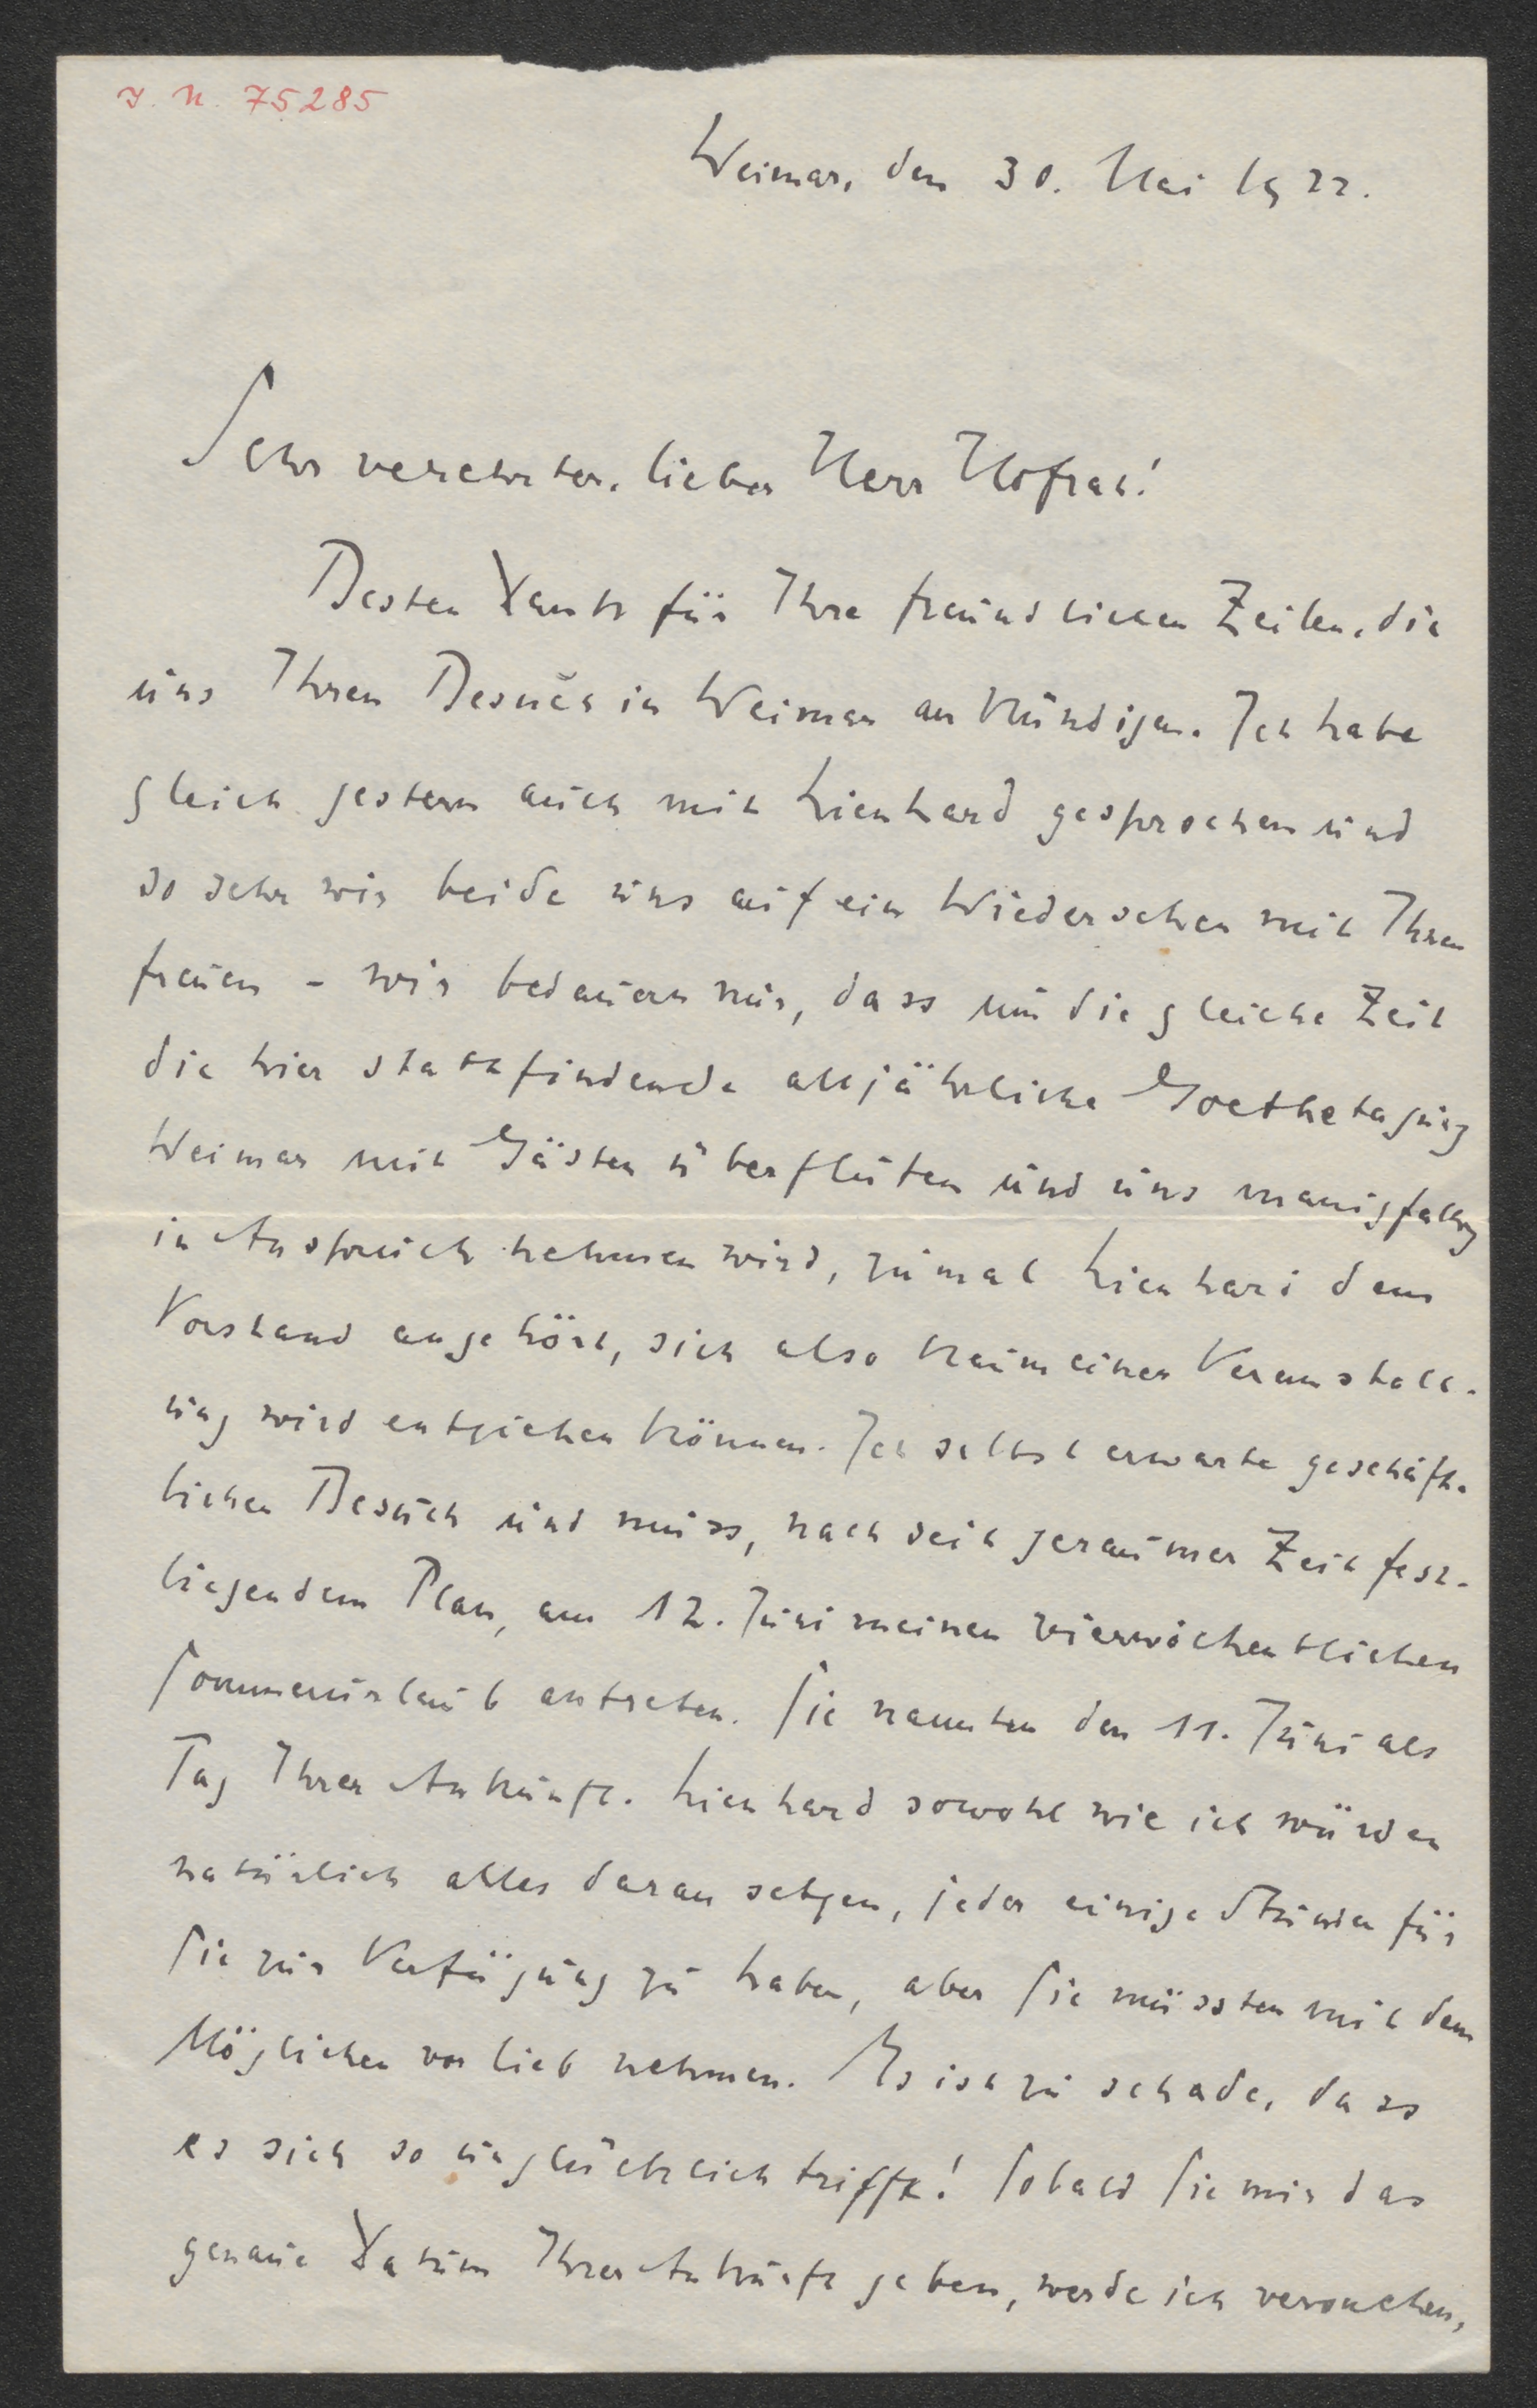 J. N. 75285
Weimar, den 30. Mai 1922.
Sehr verehrter, lieber Herr Hofrat!
Besten Dank für Ihre freundlichen Zeilen, die
uns Ihren Besuch in Weimar ankündigen. Ich habe
gleich gestern auch mit Lienhard gesprochen und
so sehr wir beide uns auf ein Wiedersehen mit Ihnen
freuen - wir bedauern nur, dass um die gleiche Zeit
die hier stattfindende alljährliche Goethetagung
Weimar mit Gästen überfluten und uns mannigfaltig
in Anspruch nehmen wird, zumal Lienhard dem
Vorstand angehört, sich also kaum einer Veranstalt-
ung wird entziehen können. Ich selbst erwarte geschäft-
lichen Besuch und muss, nach seit geraumer Zeit fest-
liegendem Plan, am 12. Juni meinen vierwöchentlichen
Sommerurlaub antreten. Sie nannten den 11. Juni als
Tag Ihrer Ankunft. Lienhard sowohl wie ich würden
natürlich alles daran setzen, jeder einige Stunden für
Sie zur Verfügung zu haben, aber Sie müssten mit dem
Möglichen vorlieb nehmen. Es ist zu schade, dass
es sich so unglücklich trifft! Sobald Sie mir das
genaue Datum Ihrer Ankunft geben, werde ich versuchen,